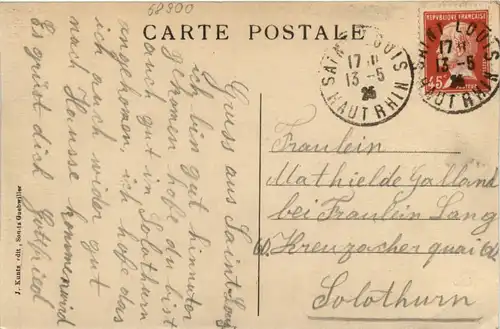 58900
CARTE POSTALE
Gruss aus Saint Louis
ich bin gut hinnuter
gekomen hofe du bist
auch gut in Solothurn
angekomen, ich hofe das
ich auch wider gut
nach Hausse kommen wird
Es grüst dich Gottfried
SAINT LOUIS
17 H
13-5
25
HAUT RHIN
SAINT LOUIS
17 H
13-5
25
HAUT RHIN
REPUBLIQUE FRANÇAISE
45c
POSTES
Fraulein
Mathielde Galland
bei Fraulein Lang
60. Kreuzacher quai 60.
Solothurn
J. Kuntz édit., Soultz Guebwiller